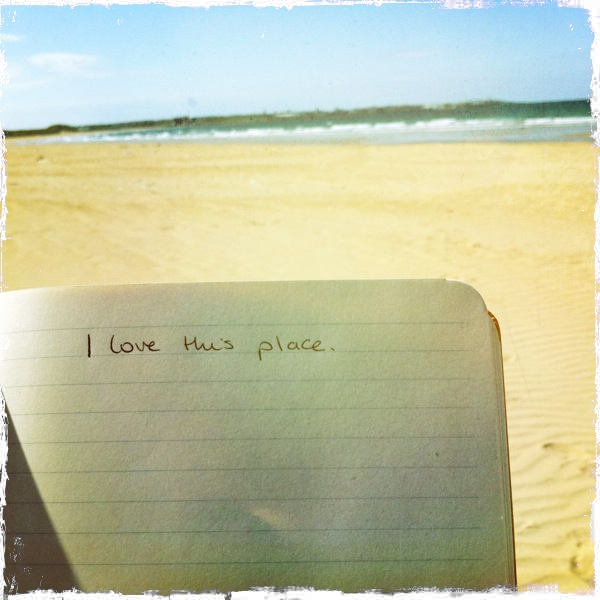 I love this place.